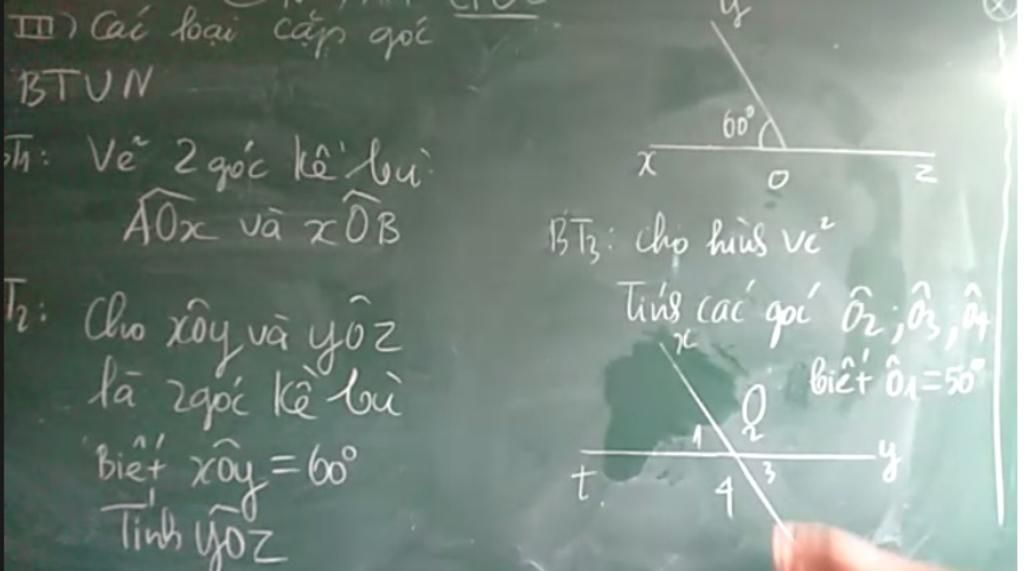 III) Các loại cặp góc
BTVN
T1: Vẽ 2 góc kề bù
AÔx và xÔB
T2: Cho xÔy và yÔz
là 2 góc kề bù
Biết xÔy = 60°
Tính yÔz
y
60°
x
O
z
BT3: Cho hình vẽ
Tính các góc Ô2; Ô3; Ô4
biết Ô1 = 50°
x
O
1
2
t
y
4
3